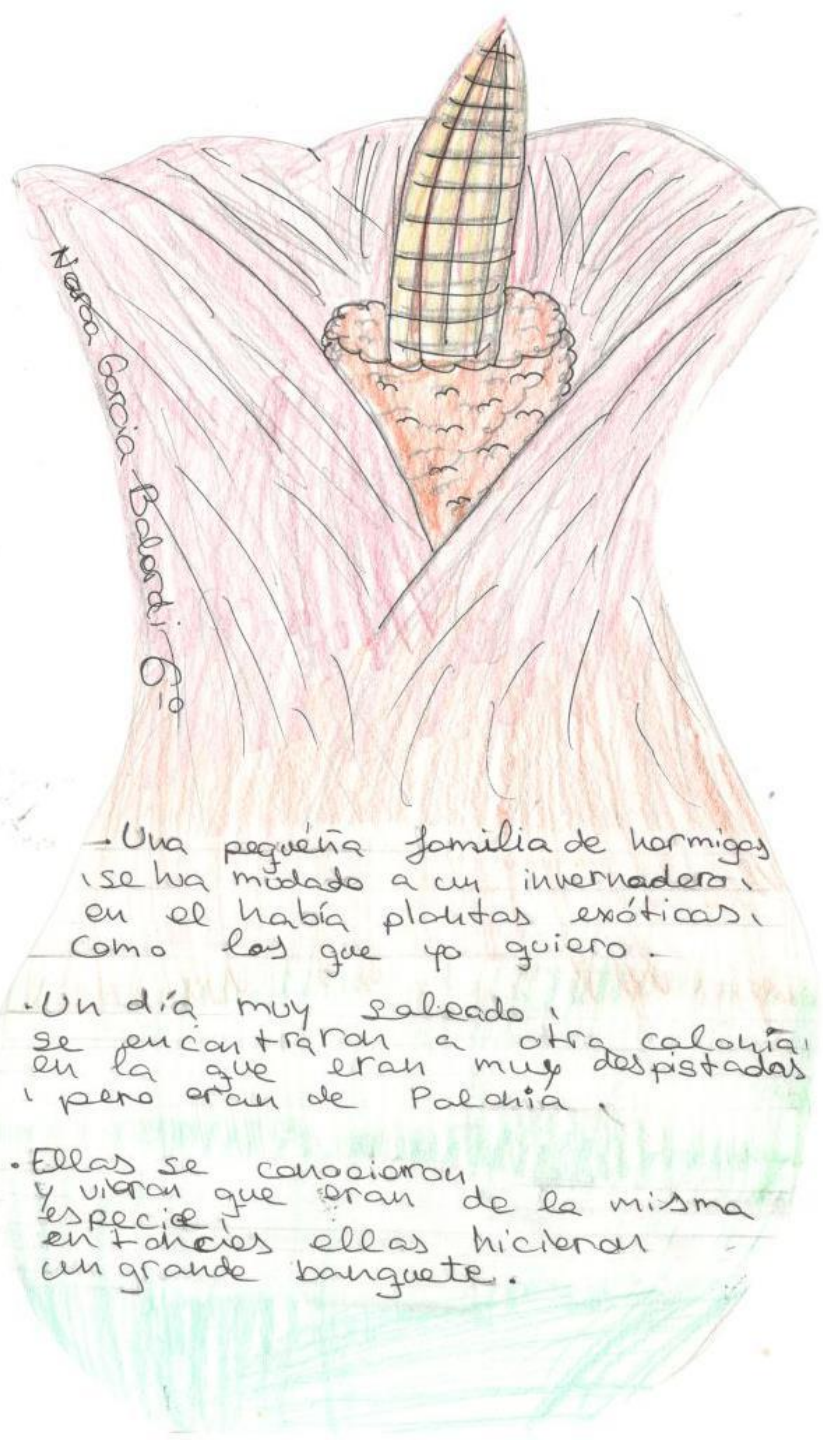 Naroa Garcia Balerdi 6º
- Una pequeña familia de hormigas
, se ha mudado a un invernadero,
en el había plantas exóticas,
como las que yo quiero.
· Un día muy soleado,
se encontraron a otra colonia,
en la que eran muy despistadas
, pero eran de Polonia.
· Ellas se conocieron,
y vieron que eran de la misma
especie,
entonces ellas hicieron
un grande banquete.